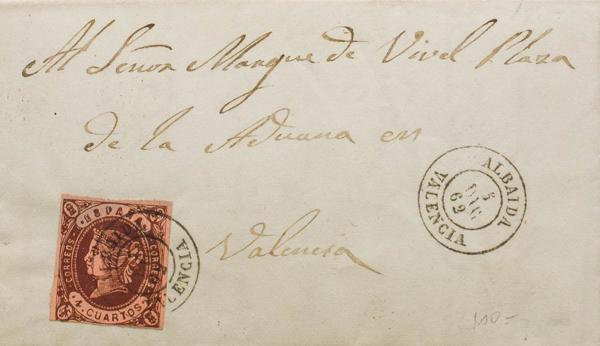 Al Señor Marque de Vivel Plaza
de la Aduana en
Valencia
ALBAIDA
5
62
VALENCIA
ESPAÑA
CORREOS
CORREOS
4 CUARTOS
ENCIA
100-